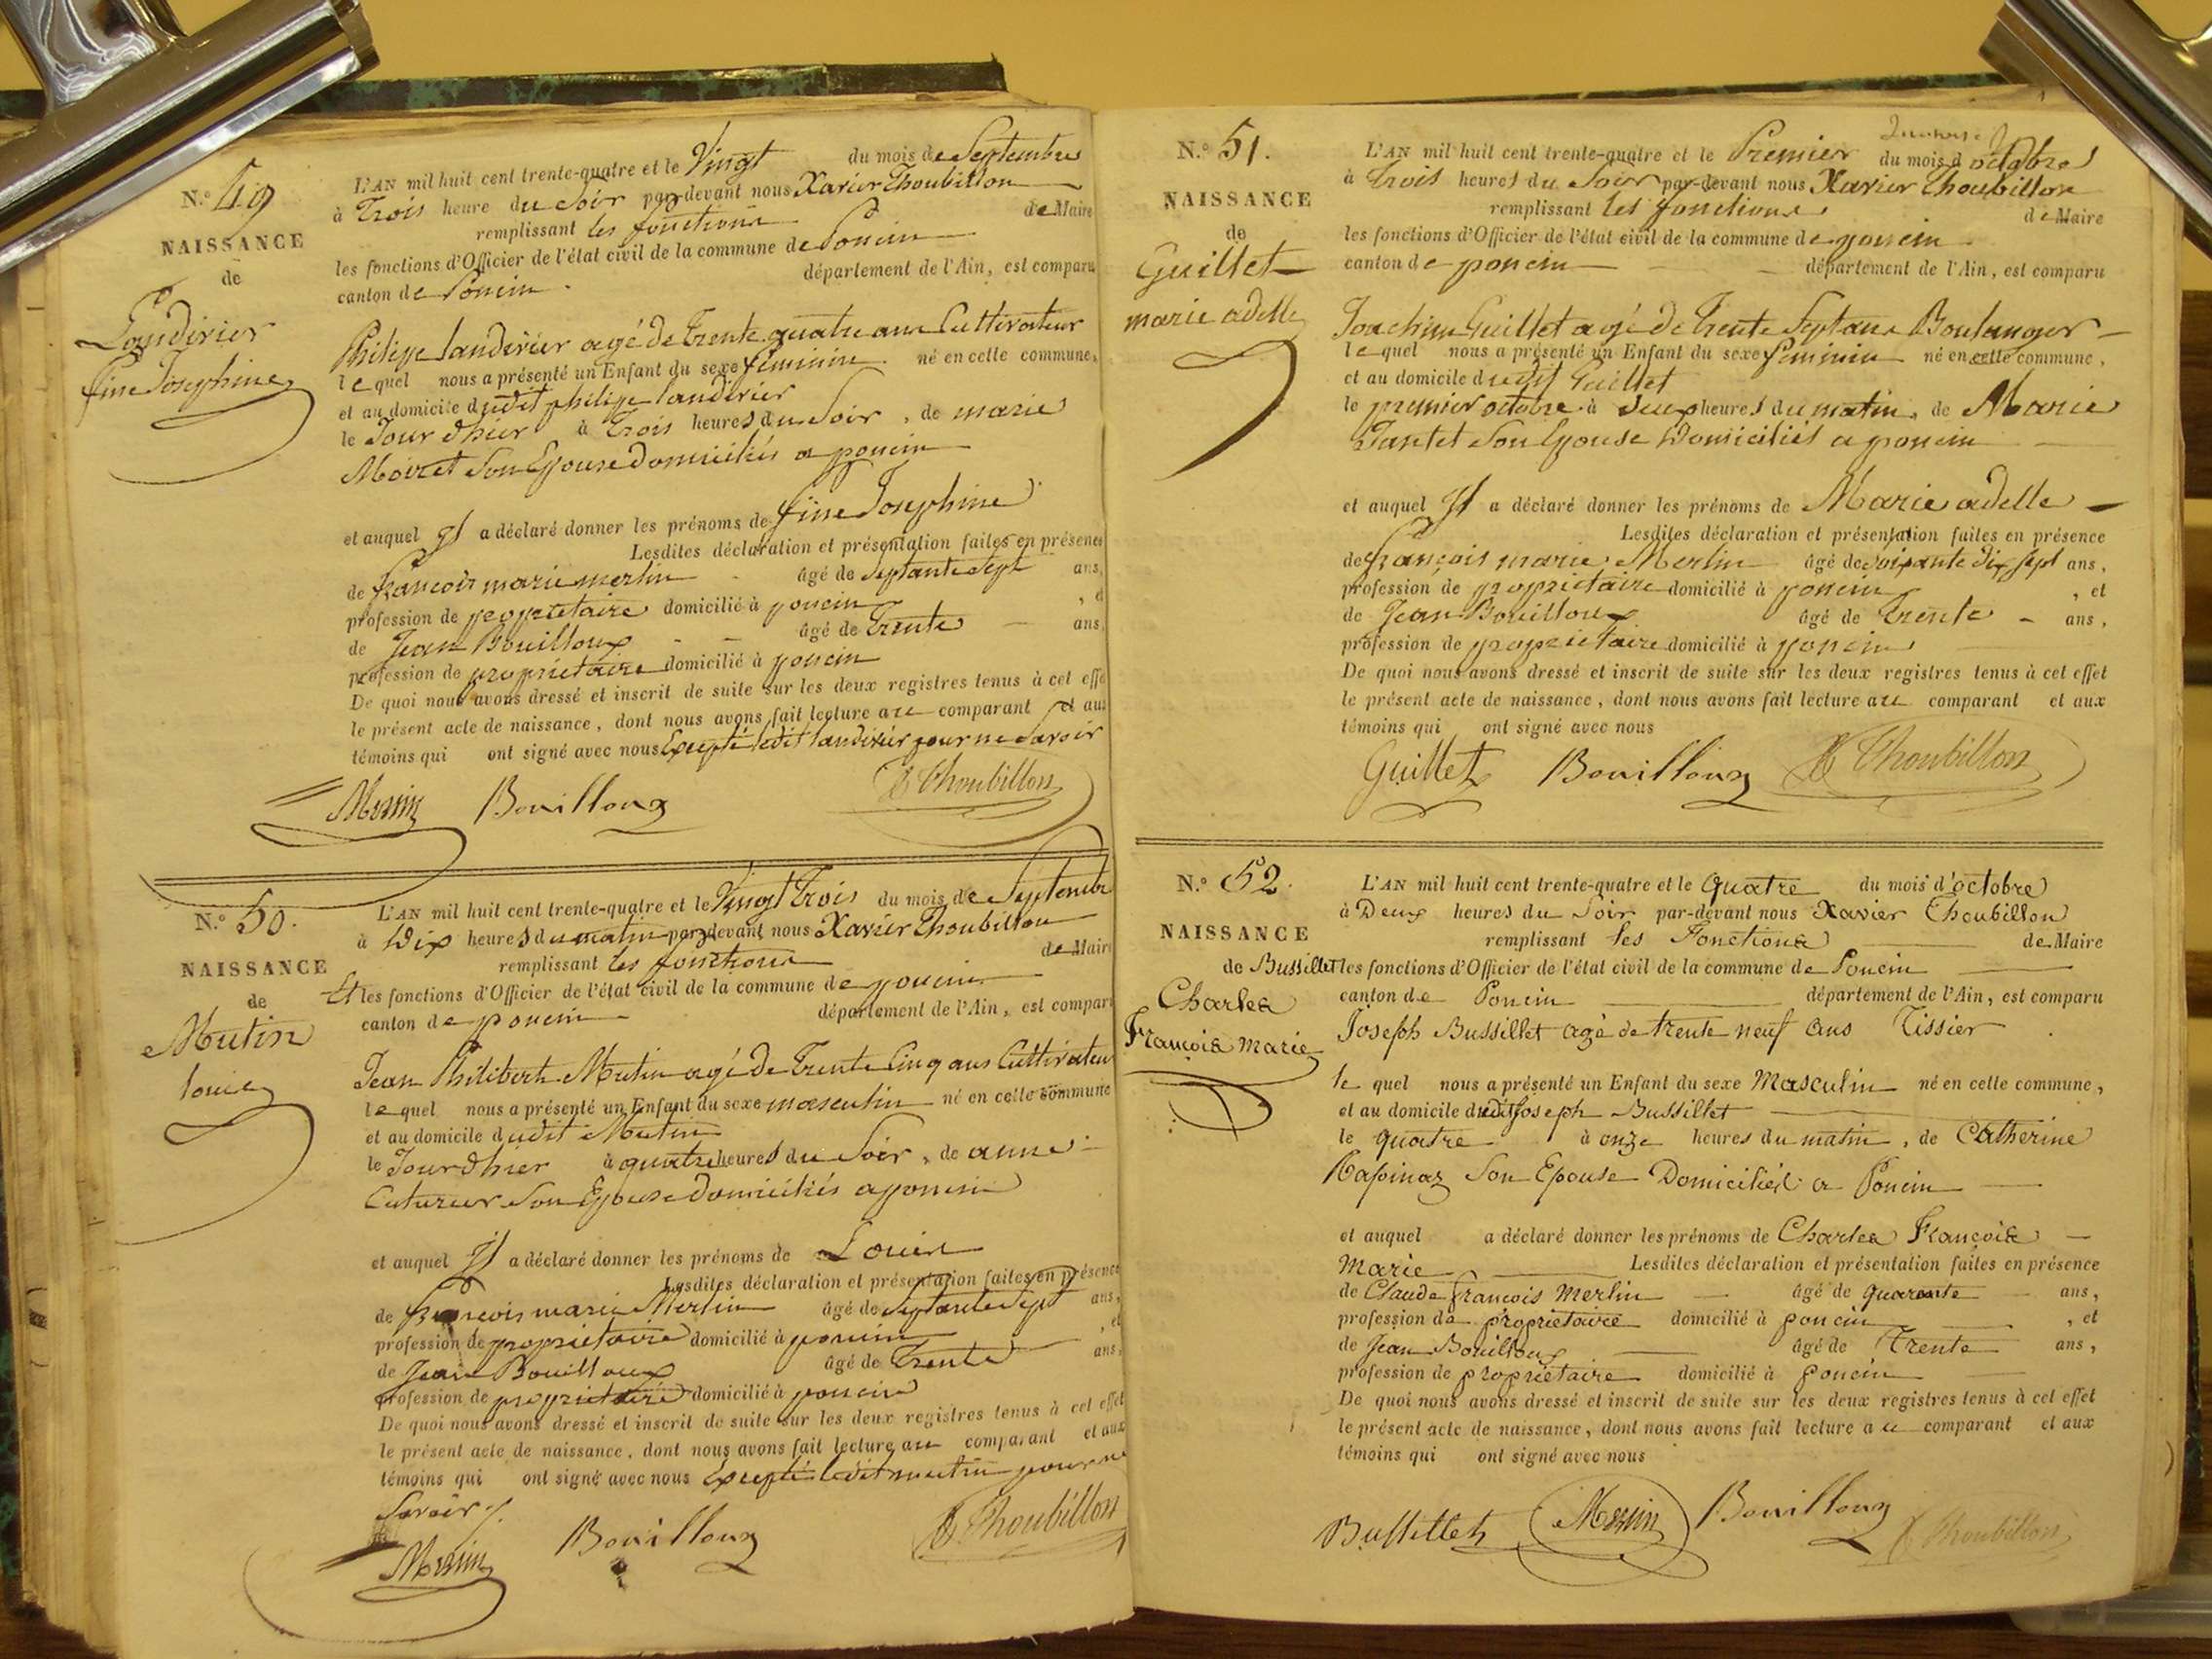 N.º 49
NAISSANCE
de
Landirier
fine Josephine
L'AN mil huit cent trente-quatre et le Vingt du mois de Septembre
à Trois heure du Soir par-devant nous Xavier Thoubillon
remplissant les fonctions de Maire
les fonctions d'Officier de l'état civil de la commune de Poncin
canton de Poncin département de l'Ain, est comparu
Philippe landirier agé de Trente quatre ans Cultivateur
lequel nous a présenté un Enfant du sexe féminin né en cette commune,
et au domicile dudit philippe landirier
le Jour dhier à Trois heures du Soir, de marie
Moiret Son Epouse domiciliés a poncin
et auquel Il a déclaré donner les prénoms de fine Josephine
Lesdites déclaration et présentation faites en présence
de françois marie merlin âgé de Septante Sept ans,
profession de propriétaire domicilié à poncin, et
de Jean Bouilloux âgé de Trente ans,
profession de propriétaire domicilié à poncin
De quoi nous avons dressé et inscrit de suite sur les deux registres tenus à cet effe
le présent acte de naissance, dont nous avons fait lecture au comparant et aux
témoins qui ont signé avec nous Excepté ledit landirier pour ne Savoir
Merlin Bouilloux X Thoubillon
N.º 50.
NAISSANCE
de
Mutin
louis
L'AN mil huit cent trente-quatre et le Vingt Trois du mois de Septembre
à Dix heures du matin par-devant nous Xavier Thoubillon
remplissant les fonctions de Maire
Et les fonctions d'Officier de l'état civil de la commune de poncin
canton de poncin département de l'Ain, est comparu
Jean Philibert Mutin agé de Trente Cinq ans Cultivateur
lequel nous a présenté un Enfant du sexe masculin né en cette commune
et au domicile dudit Mutin
le Jour dhier à quatre heures du Soir, de anne
Cuturier Son Epouse domiciliés a poncin
et auquel Il a déclaré donner les prénoms de Louis
Lesdites déclaration et présentation faites en présence
de françois marie Merlin âgé de Septante Sept ans,
profession de propriétaire domicilié à poncin, et
de Jean Bouilloux âgé de Trente ans,
profession de propriétaire domicilié à poncin
De quoi nous avons dressé et inscrit de suite sur les deux registres tenus à cet effet
le présent acte de naissance, dont nous avons fait lecture au comparant et aux
témoins qui ont signé avec nous Excepté ledit mutin pour ne
Savoir
Merlin Bouilloux X Thoubillon
N.º 51.
NAISSANCE
de
Guillet
marie adelle
L'AN mil huit cent trente-quatre et le Premier du mois d octobre
à Trois heures du Soir par-devant nous Xavier Thoubillon
remplissant les fonctions de Maire
les fonctions d'Officier de l'état civil de la commune de poncin
canton de poncin département de l'Ain, est comparu
Joachim Guillet agé de Trente Sept ans Boulanger
lequel nous a présenté un Enfant du sexe féminin né en cette commune,
et au domicile dudit Guillet
le premier octobre à deux heures du matin, de Marie
Tantet Son Epouse Domiciliés a poncin
et auquel Il a déclaré donner les prénoms de Marie adelle
Lesdites déclaration et présentation faites en présence
de françois marie Merlin âgé de Soixante dix Sept ans,
profession de propriétaire domicilié à poncin, et
de Jean Bouilloux âgé de Trente ans,
profession de propriétaire domicilié à poncin
De quoi nous avons dressé et inscrit de suite sur les deux registres tenus à cet effet
le présent acte de naissance, dont nous avons fait lecture au comparant et aux
témoins qui ont signé avec nous
Guillet Bouilloux X Thoubillon
N.º 52.
NAISSANCE
de Bussillet
Charles
François marie
L'AN mil huit cent trente-quatre et le Quatre du mois d'octobre
à Deux heures du Soir par-devant nous Xavier Thoubillon
remplissant les Fonctions de Maire
les fonctions d'Officier de l'état civil de la commune de Poncin
canton de Poncin département de l'Ain, est comparu
Joseph Bussillet agé de trente neuf ans Tissier
le quel nous a présenté un Enfant du sexe Masculin né en cette commune,
et au domicile dudit Joseph Bussillet
le quatre à onze heures du matin, de Catherine
Rapinaz Son Epouse Domiciliés a Poncin
et auquel a déclaré donner les prénoms de Charles François
Marie Lesdites déclaration et présentation faites en présence
de Claude françois Merlin âgé de quarante ans,
profession de propriétaire domicilié à poncin, et
de Jean Bouilloux âgé de Trente ans,
profession de propriétaire domicilié à poncin
De quoi nous avons dressé et inscrit de suite sur les deux registres tenus à cet effet
le présent acte de naissance, dont nous avons fait lecture au comparant et aux
témoins qui ont signé avec nous
Bussillet Merlin Bouilloux X Thoubillon